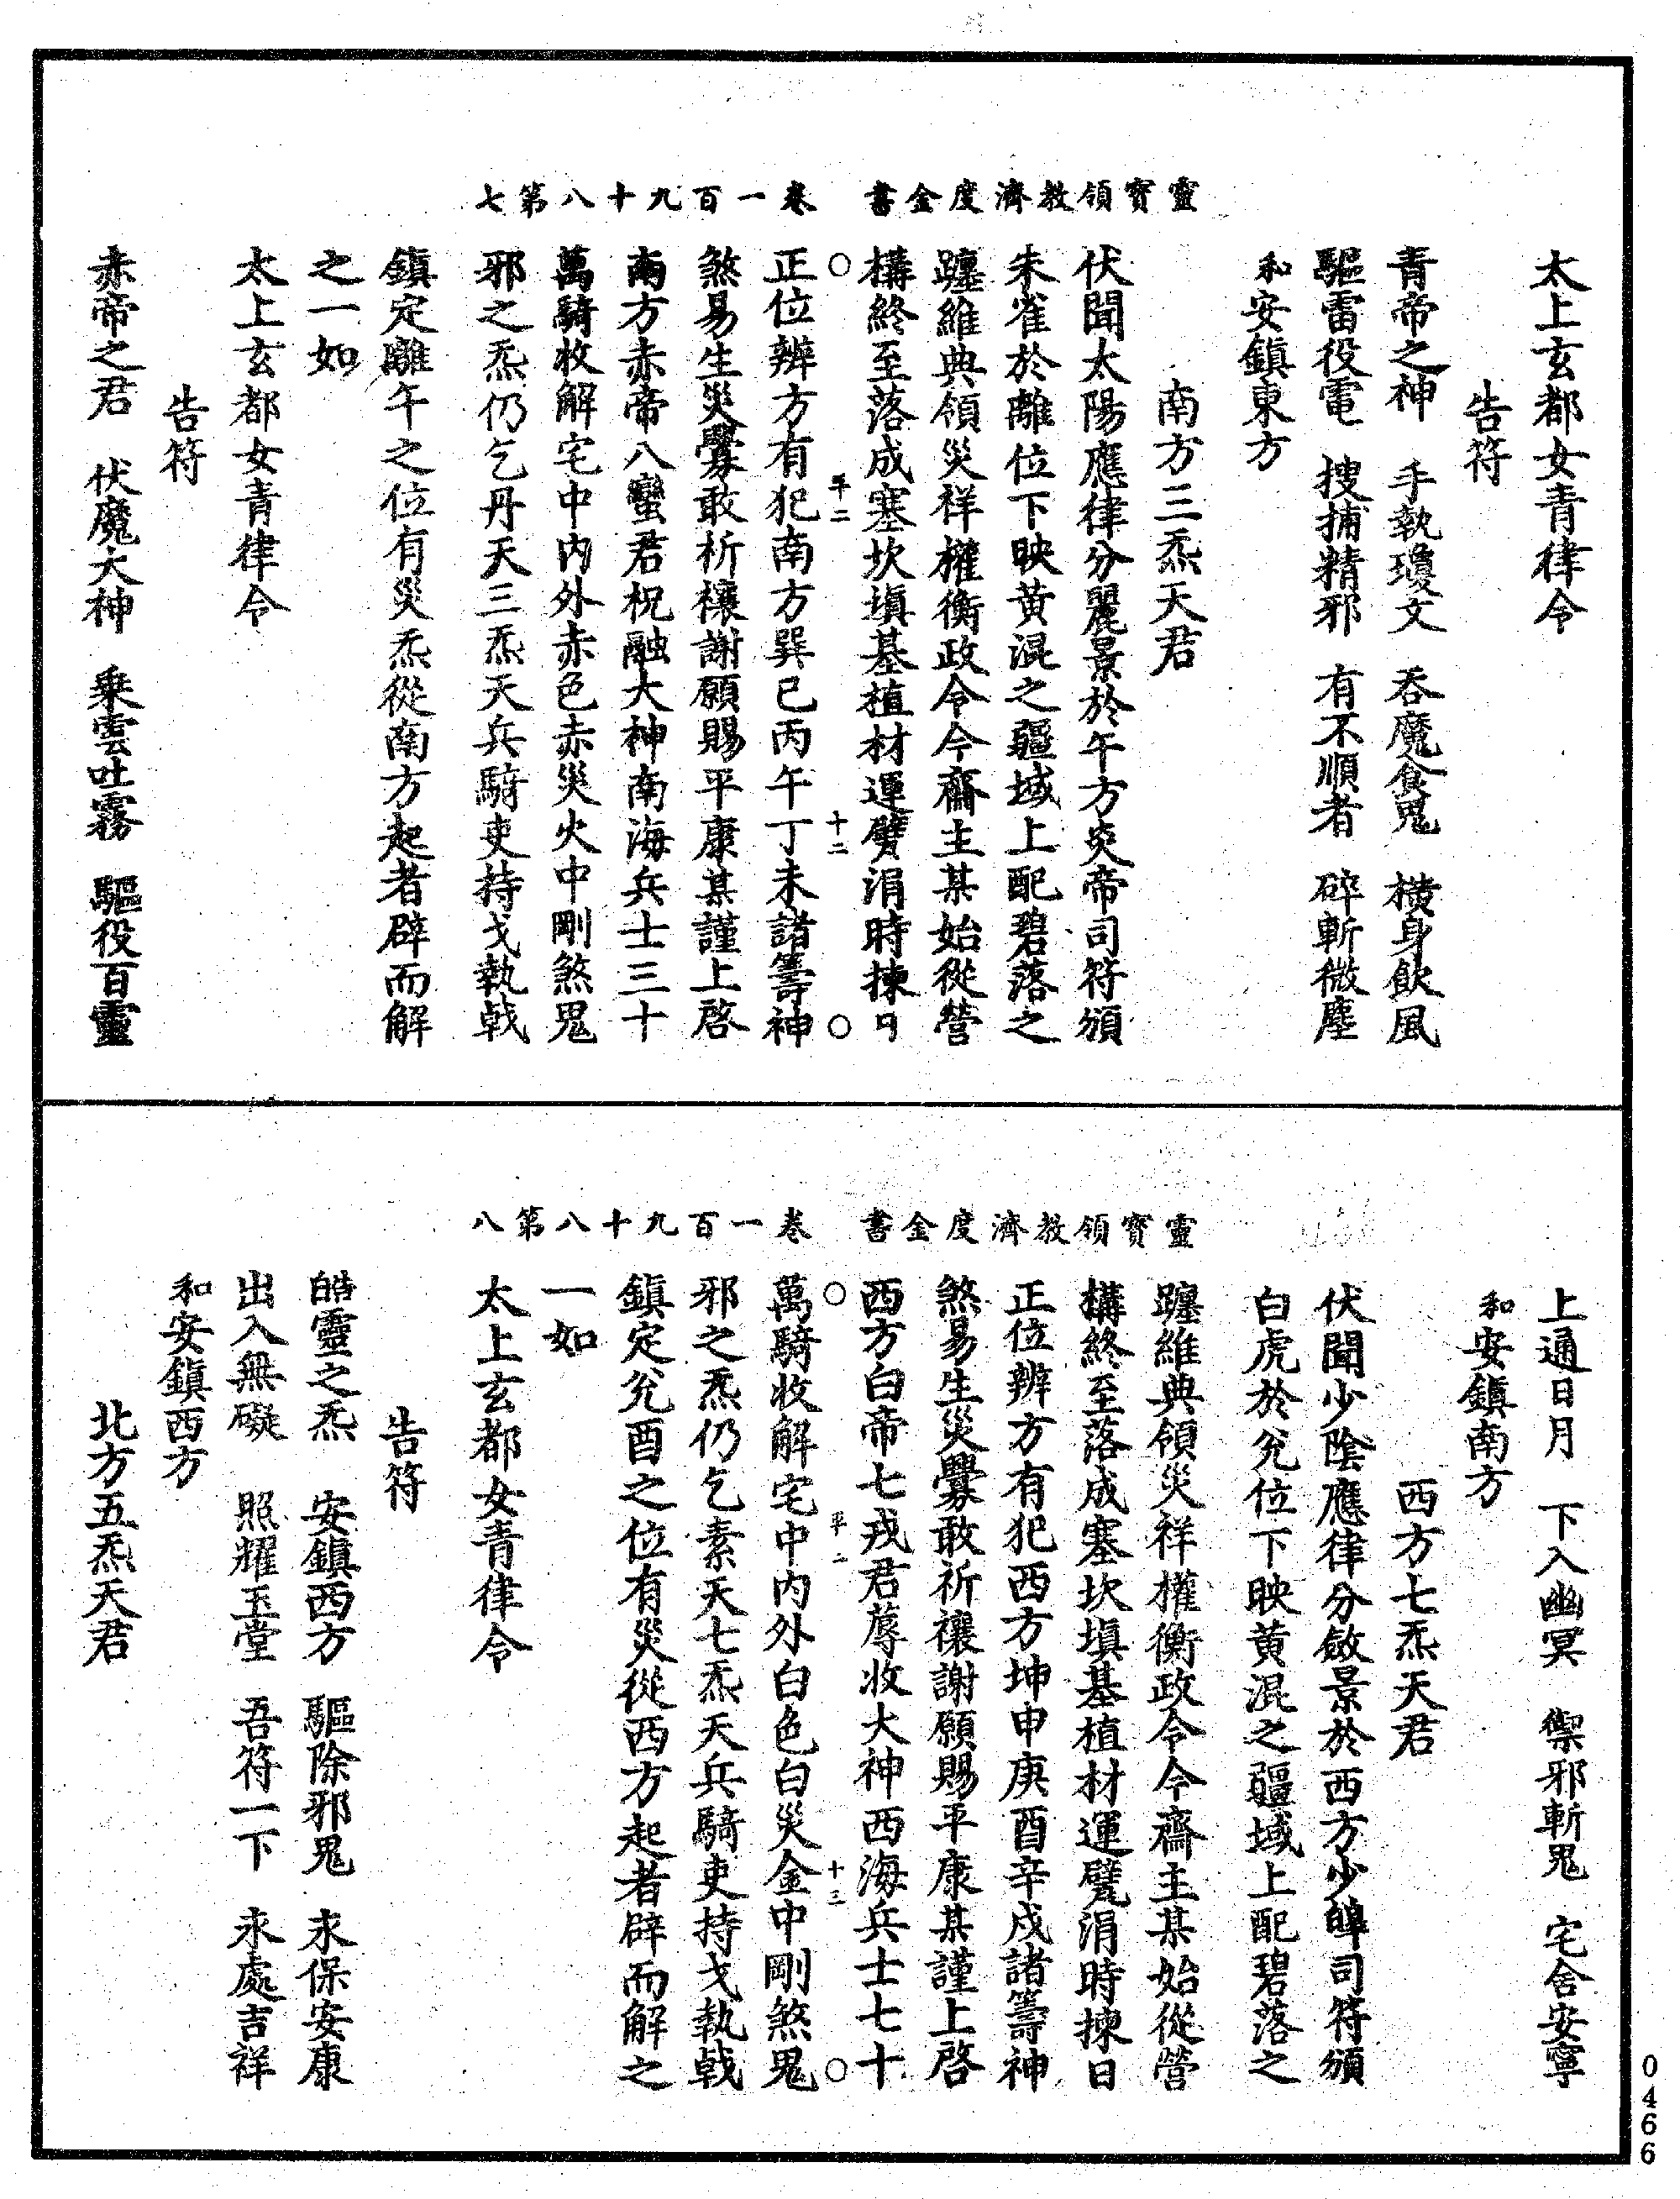 靈寶領教濟度金書 卷一百九十八第七
太上玄都女青律令
告符
青帝之神 手執瓊文 吞魔食鬼 橫身飲風
驅雷役電 搜捕精邪 有不順者 碎斬微塵
和安鎮東方
南方三炁天君
伏聞太陽應律分麗景於午方炎帝司符頒
朱雀於離位下映黃混之疆域上配碧落之
躔維典領災祥權衡政令今齋主某始從營
構終至落成塞坎填基植材運甓涓時揀日
○ 平二 十二 ○
正位辨方有犯南方巽巳丙午丁未諸籌神
煞易生災釁敢祈禳謝願賜平康某謹上啓
南方赤帝八蠻君祝融大神南海兵士三十
萬騎收解宅中內外赤色赤災火中剛煞鬼
邪之炁仍乞丹天三炁天兵騎吏持戈執戟
鎮定離午之位有災炁從南方起者辟而解
之一如
太上玄都女青律令
告符
赤帝之君 伏魔大神 乗雲吐霧 驅役百靈
靈寶領教濟度金書 卷一百九十八第八
上通日月 下入幽冥 禦邪斬鬼 宅舍安寧
和安鎮南方
西方七炁天君
伏聞少陰應律分斂景於西方少皥司符頒
白虎於兊位下映黃混之疆域上配碧落之
躔維典領災祥權衡政令今齋主某始從營
構終至落成塞坎填基植材運甓涓時揀日
正位辨方有犯西方坤申庚酉辛戍諸籌神
煞易生災釁敢祈禳謝願賜平康某謹上啓
西方白帝七戎君蓐收大神西海兵士七十
○ 平二 十三 ○
萬騎收解宅中內外白色白災金中剛煞鬼
邪之炁仍乞素天七炁天兵騎吏持戈執戟
鎮定兊酉之位有災從西方起者辟而解之
一如
太上玄都女青律令
告符
皓靈之炁 安鎮西方 驅除邪鬼 永保安康
出入無礙 照耀玉堂 吾符一下 永處吉祥
和安鎮西方
北方五炁天君
0466